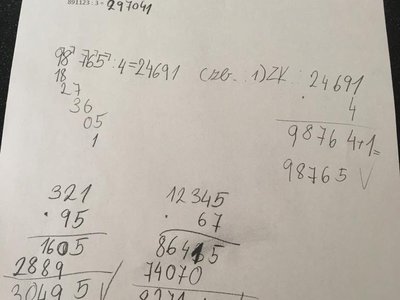 891123 : 3 = 297041
98765 : 4 = 24691
18
27
36
05
1
1) ZK
24691
· 4
98764+1=
98765 V
321
· 95
1605
2889
30495 V
12345
· 67
86415
74070